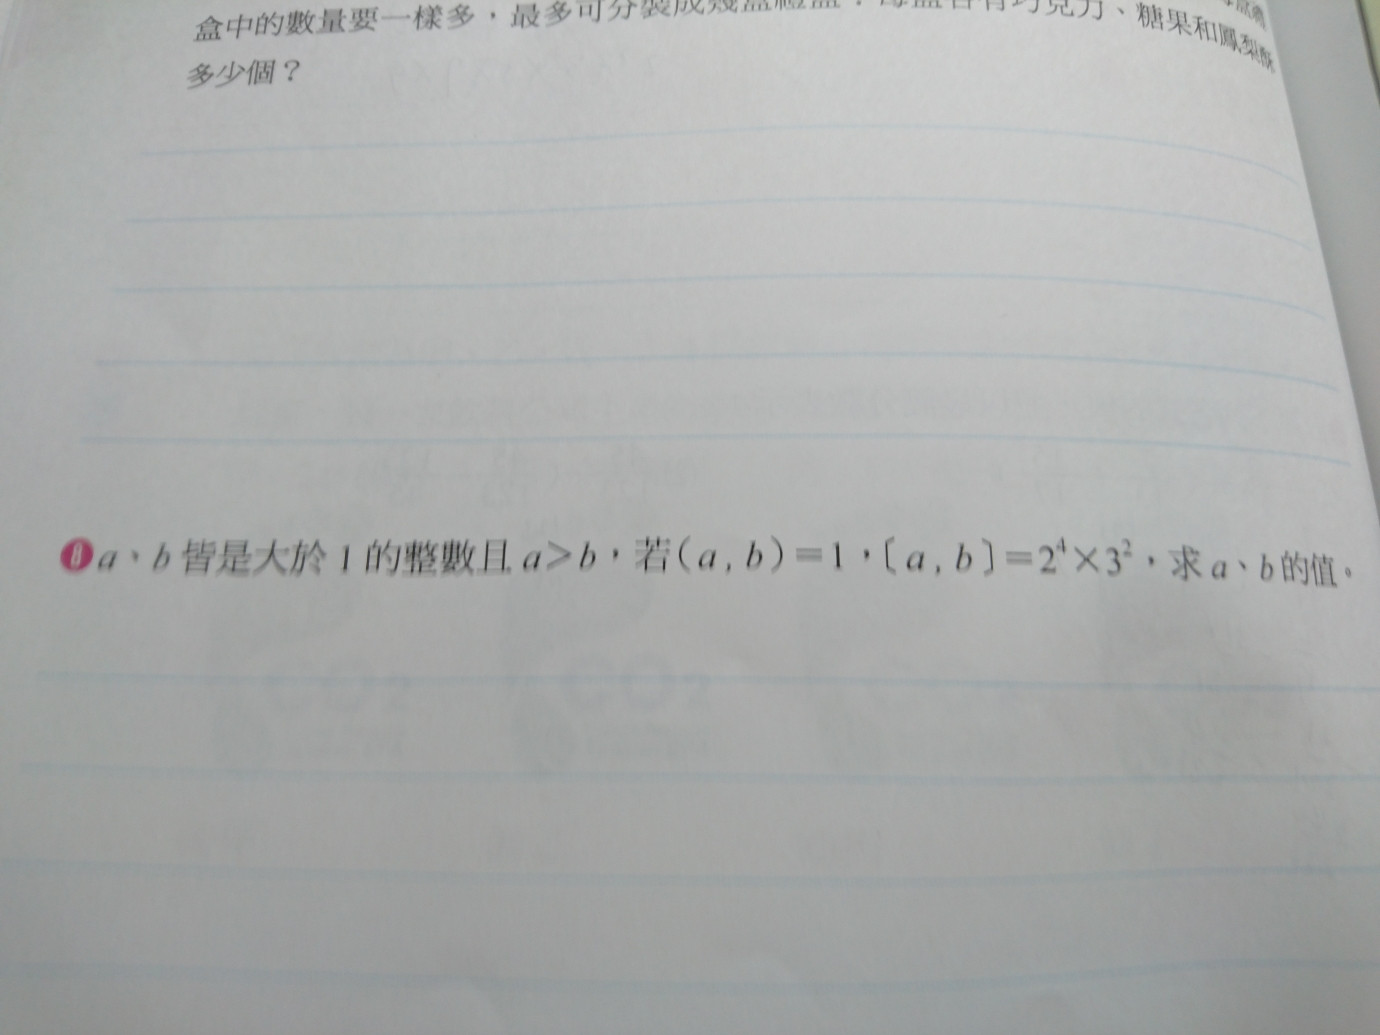 盒中的數量要一樣多，最多可分裝成幾盒禮盒？每盒各有巧克力、糖果和鳳梨酥
多少個？
8 a、b 皆是大於 1 的整數且 a＞b，若(a , b)＝1，〔a , b〕＝2⁴×3²，求 a、b 的值。